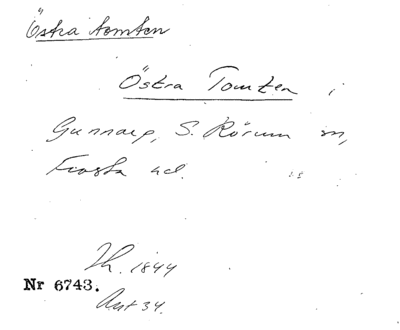 Östra tomten
Östra Tomten i
Gunnarp, S. Rörum sn,
Frosta hd.
Th. 1844
Nr 6743.
Akt 34.